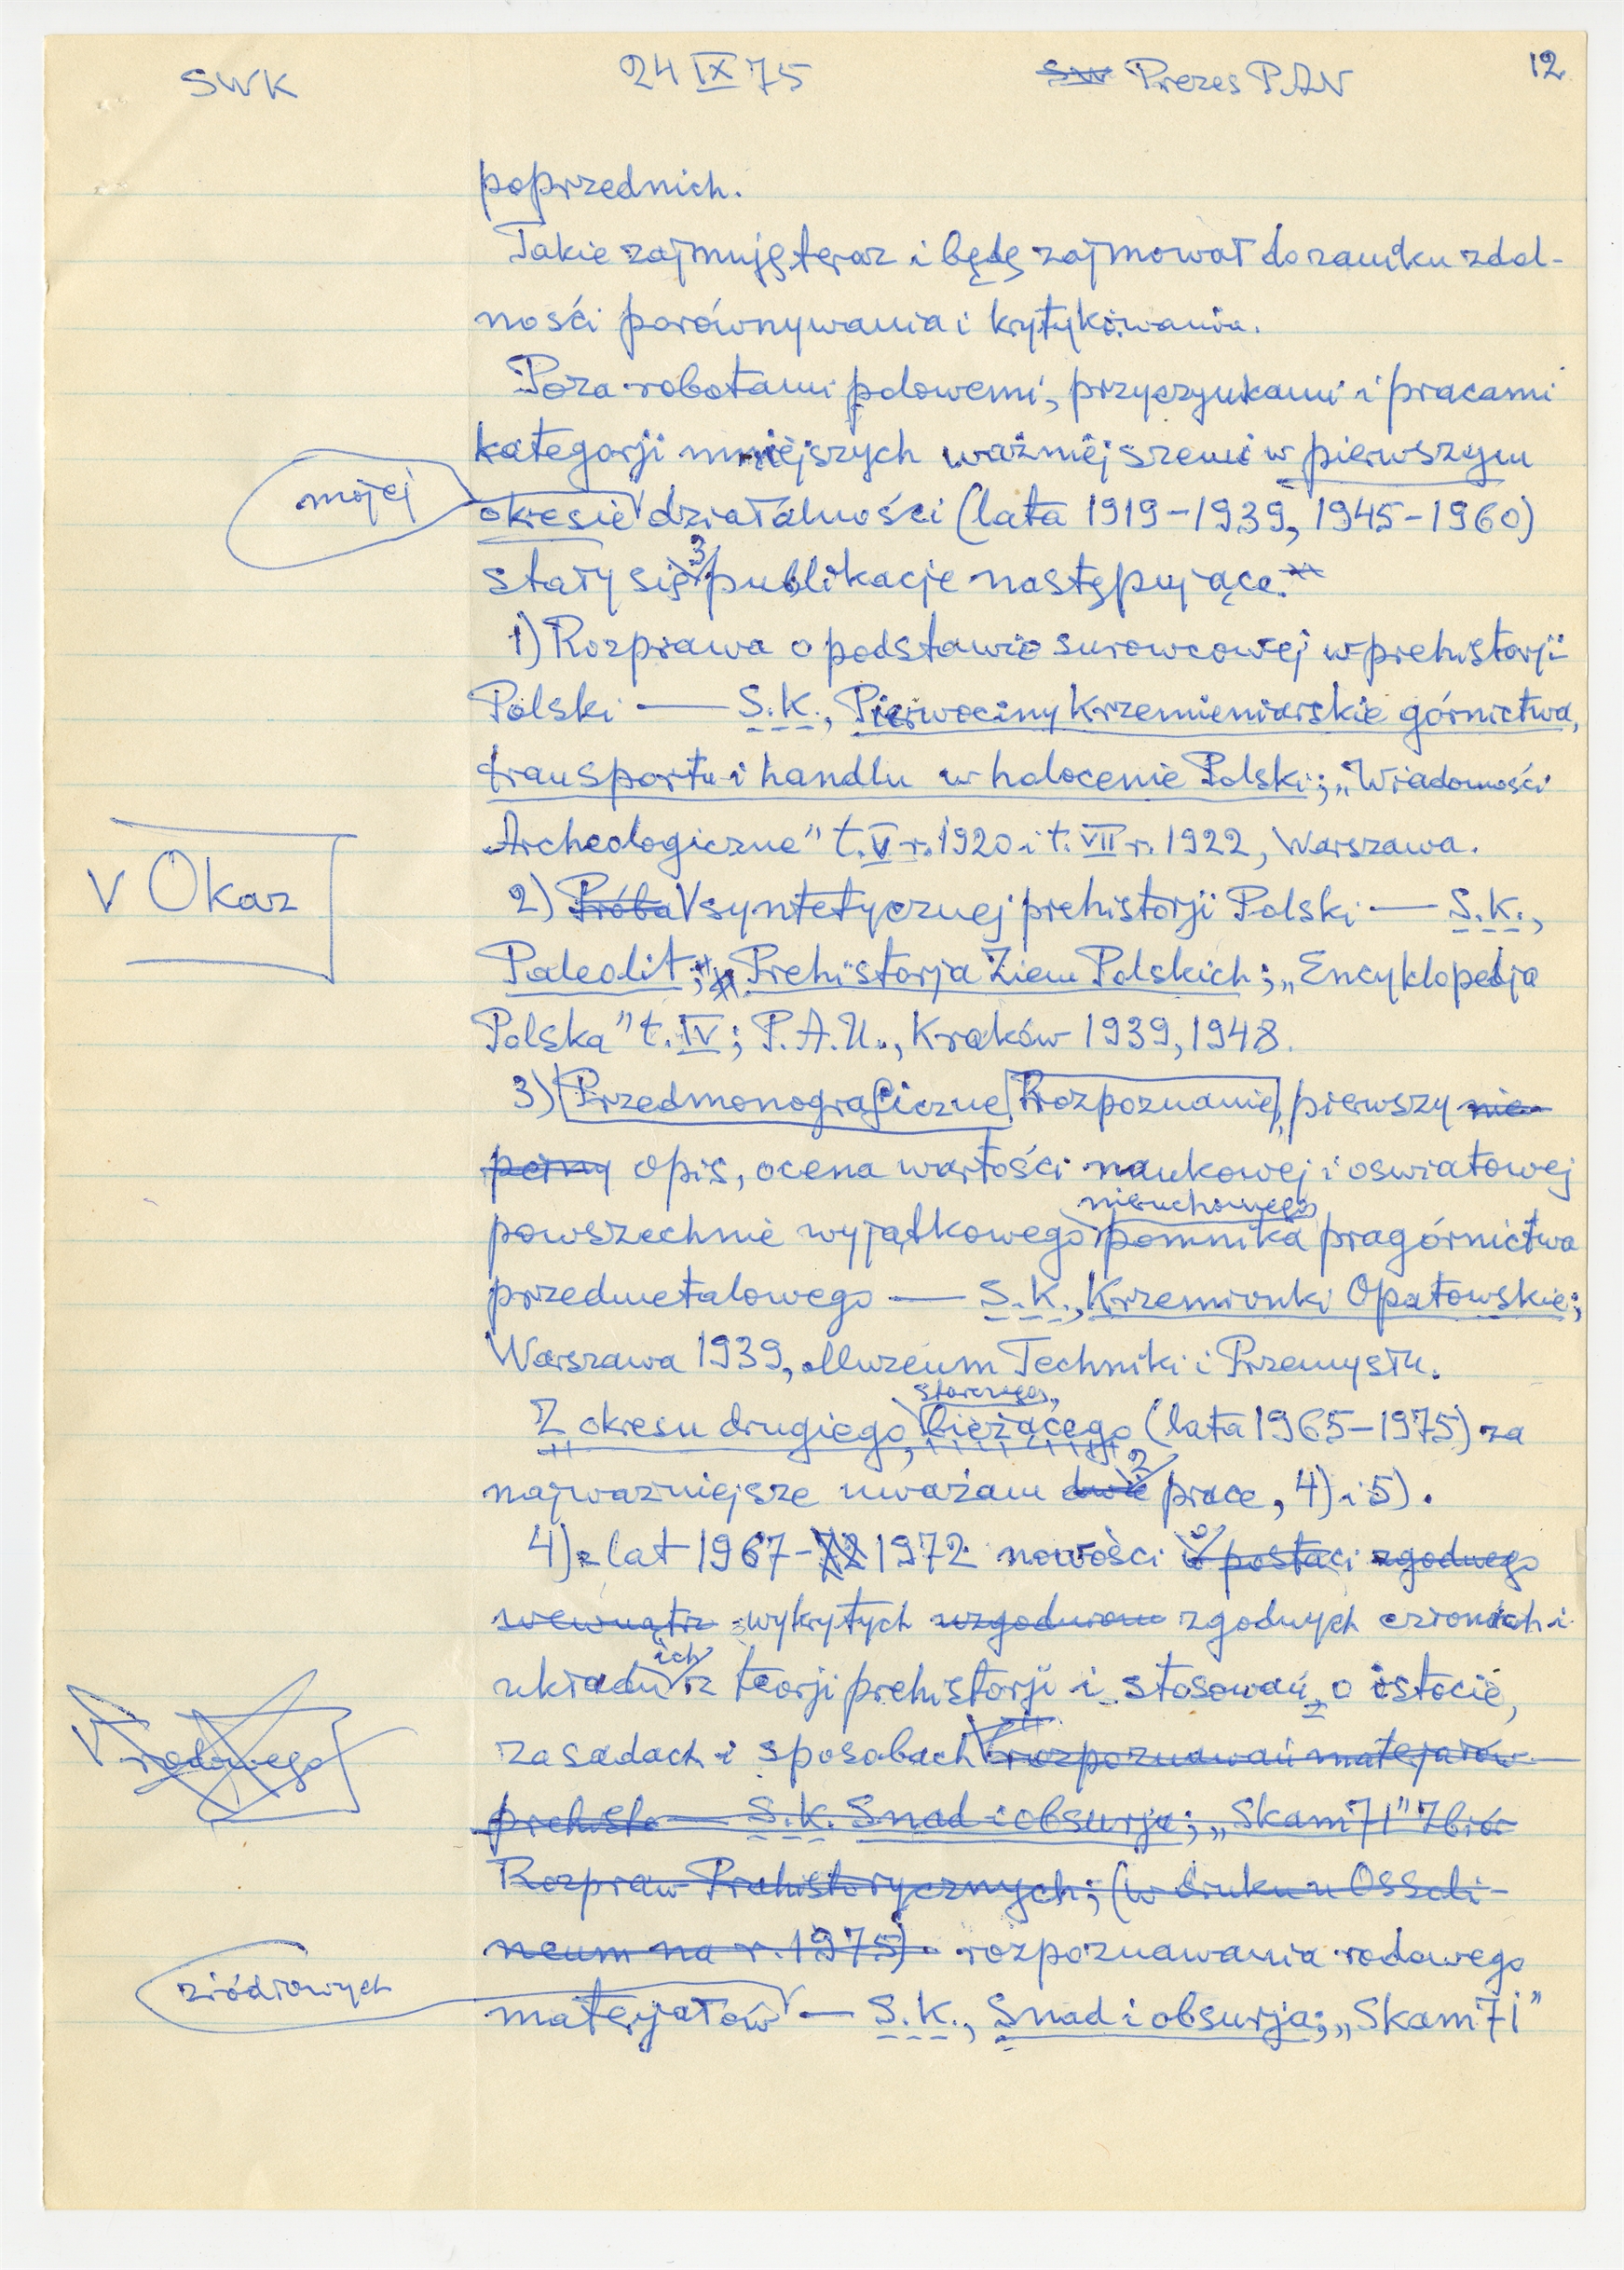 SWK 24 IX 75 SW Prezes PAN 12
poprzednich.
Takie zajmuję teraz i będę zajmował do zaniku zdol-
ności porównywania i krytykowania.
Poza robotami polowemi, przyczynkami i pracami
kategorji mniejszych ważniejszemi w pierwszym
mojej
okresie działalności (lata 1919-1939, 1945-1960)
stały się 3 publikacje następujące.
1) Rozprawa o podstawie surowcowej w prehistorji
Polski — S.K., Pierwociny krzemieniarskie górnictwa,
transportu i handlu w holocenie Polski; „Wiadomości
Archeologiczne" t. V r. 1920 i t. VII r. 1922, Warszawa.
V Okaz
2) Próba V syntetycznej prehistorji Polski — S.K.,
Paleolit; Prehistorja Ziem Polskich; „Encyklopedja
Polska" t. IV; P.A.U., Kraków 1939, 1948.
3) Przedmonograficzne Rozpoznanie, pierwszy nie-
pełny opis, ocena wartości naukowej i oswiatowej
nieruchomego
powszechnie wyjątkowego pomnika pragórnictwa
przedmetalowego — S.K., Krzemionki Opatowskie;
Warszawa 1939, Muzeum Techniki i Przemysłu.
starczego,
Z okresu drugiego, bieżącego (lata 1965-1975) za
najważniejsze uważam dwie 2 prace, 4) i 5).
4) z lat 1967-72 1972 nowości w postaci zgodnego
wewnątrz wykrytych uzgodniono zgodnych członach i
ich
układu z teorji prehistorji i stosowań, o istocie,
zasadach i sposobach rozpoznawań materjałów
V rodowego
prehisto — S.K. Snad i obsurja; „Skam 71" Zbiór
Rozpraw Prehistorycznych; (w druku u Ossoli-
neum na r. 1975). rozpoznawania rodowego
źródłowych
materjałów — S.K., Snad i obsurja; „Skam 71"